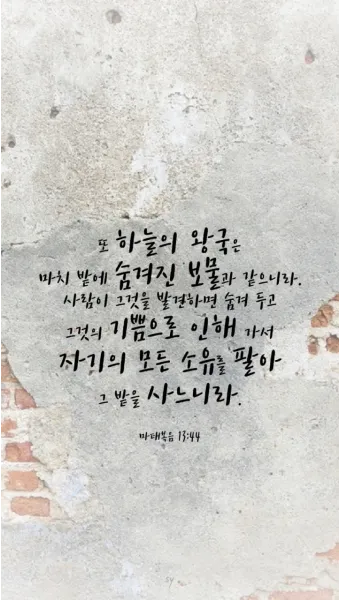 또 하늘의 왕국은
마치 밭에 숨겨진 보물과 같으니라.
사람이 그것을 발견하면 숨겨 두고
그것의 기쁨으로 인해 가서
자기의 모든 소유를 팔아
그 밭을 사느니라.
마태복음 13:44
sy